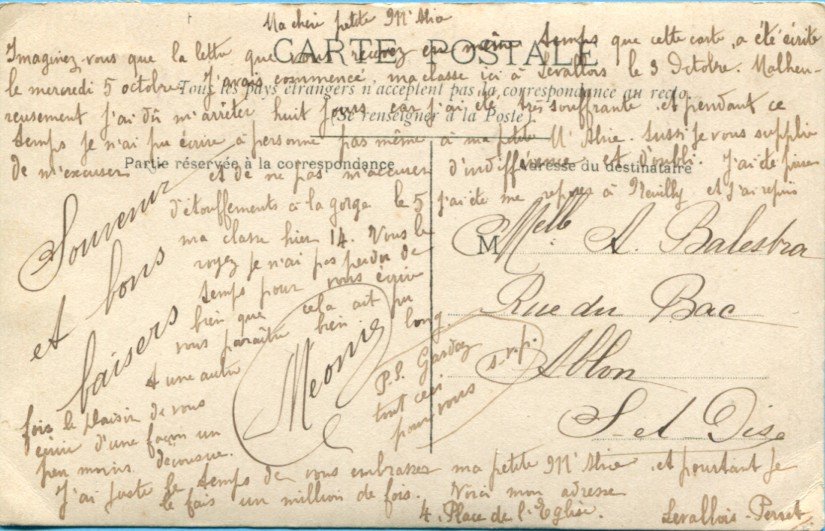 Ma chère petite M'Alia
CARTE POSTALE
Imaginez-vous que la lettre que vous recevez en même temps que cette carte, a été écrite
le mercredi 5 octobre. J'avais commencé, ma classe ici à Levallois le 3 Octobre. Malheu-
Tous les pays étrangers n'acceptent pas la correspondance au recto.
reusement j'ai dû m'arrêter huit jours car j'ai été très souffrante et pendant ce
(Se renseigner à la Poste).
temps je n'ai pu écrire à personne pas même à ma petite M' Aussi je vous supplie
de m'excuser et de ne pas m'accuser d'indifférence et d'oubli. J'ai été prise
Partie réservée à la correspondance
Adresse du destinataire
d'étouffements à la gorge le 5 j'ai été me reposer à Neuilly et j'ai repris
ma classe hier 14. Vous le
voyez je n'ai pas perdu de
temps pour vous écrire
bien que cela ait pu
vous paraître bien long
A une autre
fois le plaisir de vous
écrire d'une façon un
peu moins décousue.
J'ai juste le temps de vous embrasser ma petite M' et pourtant je
le fais un million de fois. Voici mon adresse
4, Place de l'Eglise. Levallois-Perret
Souvenir
et bons
baisers
P.S. Gardez
tout ceci
pour vous
s.v.p.
M
Melle A. Balestra
Rue du Bac
Ablon
S. et Oise